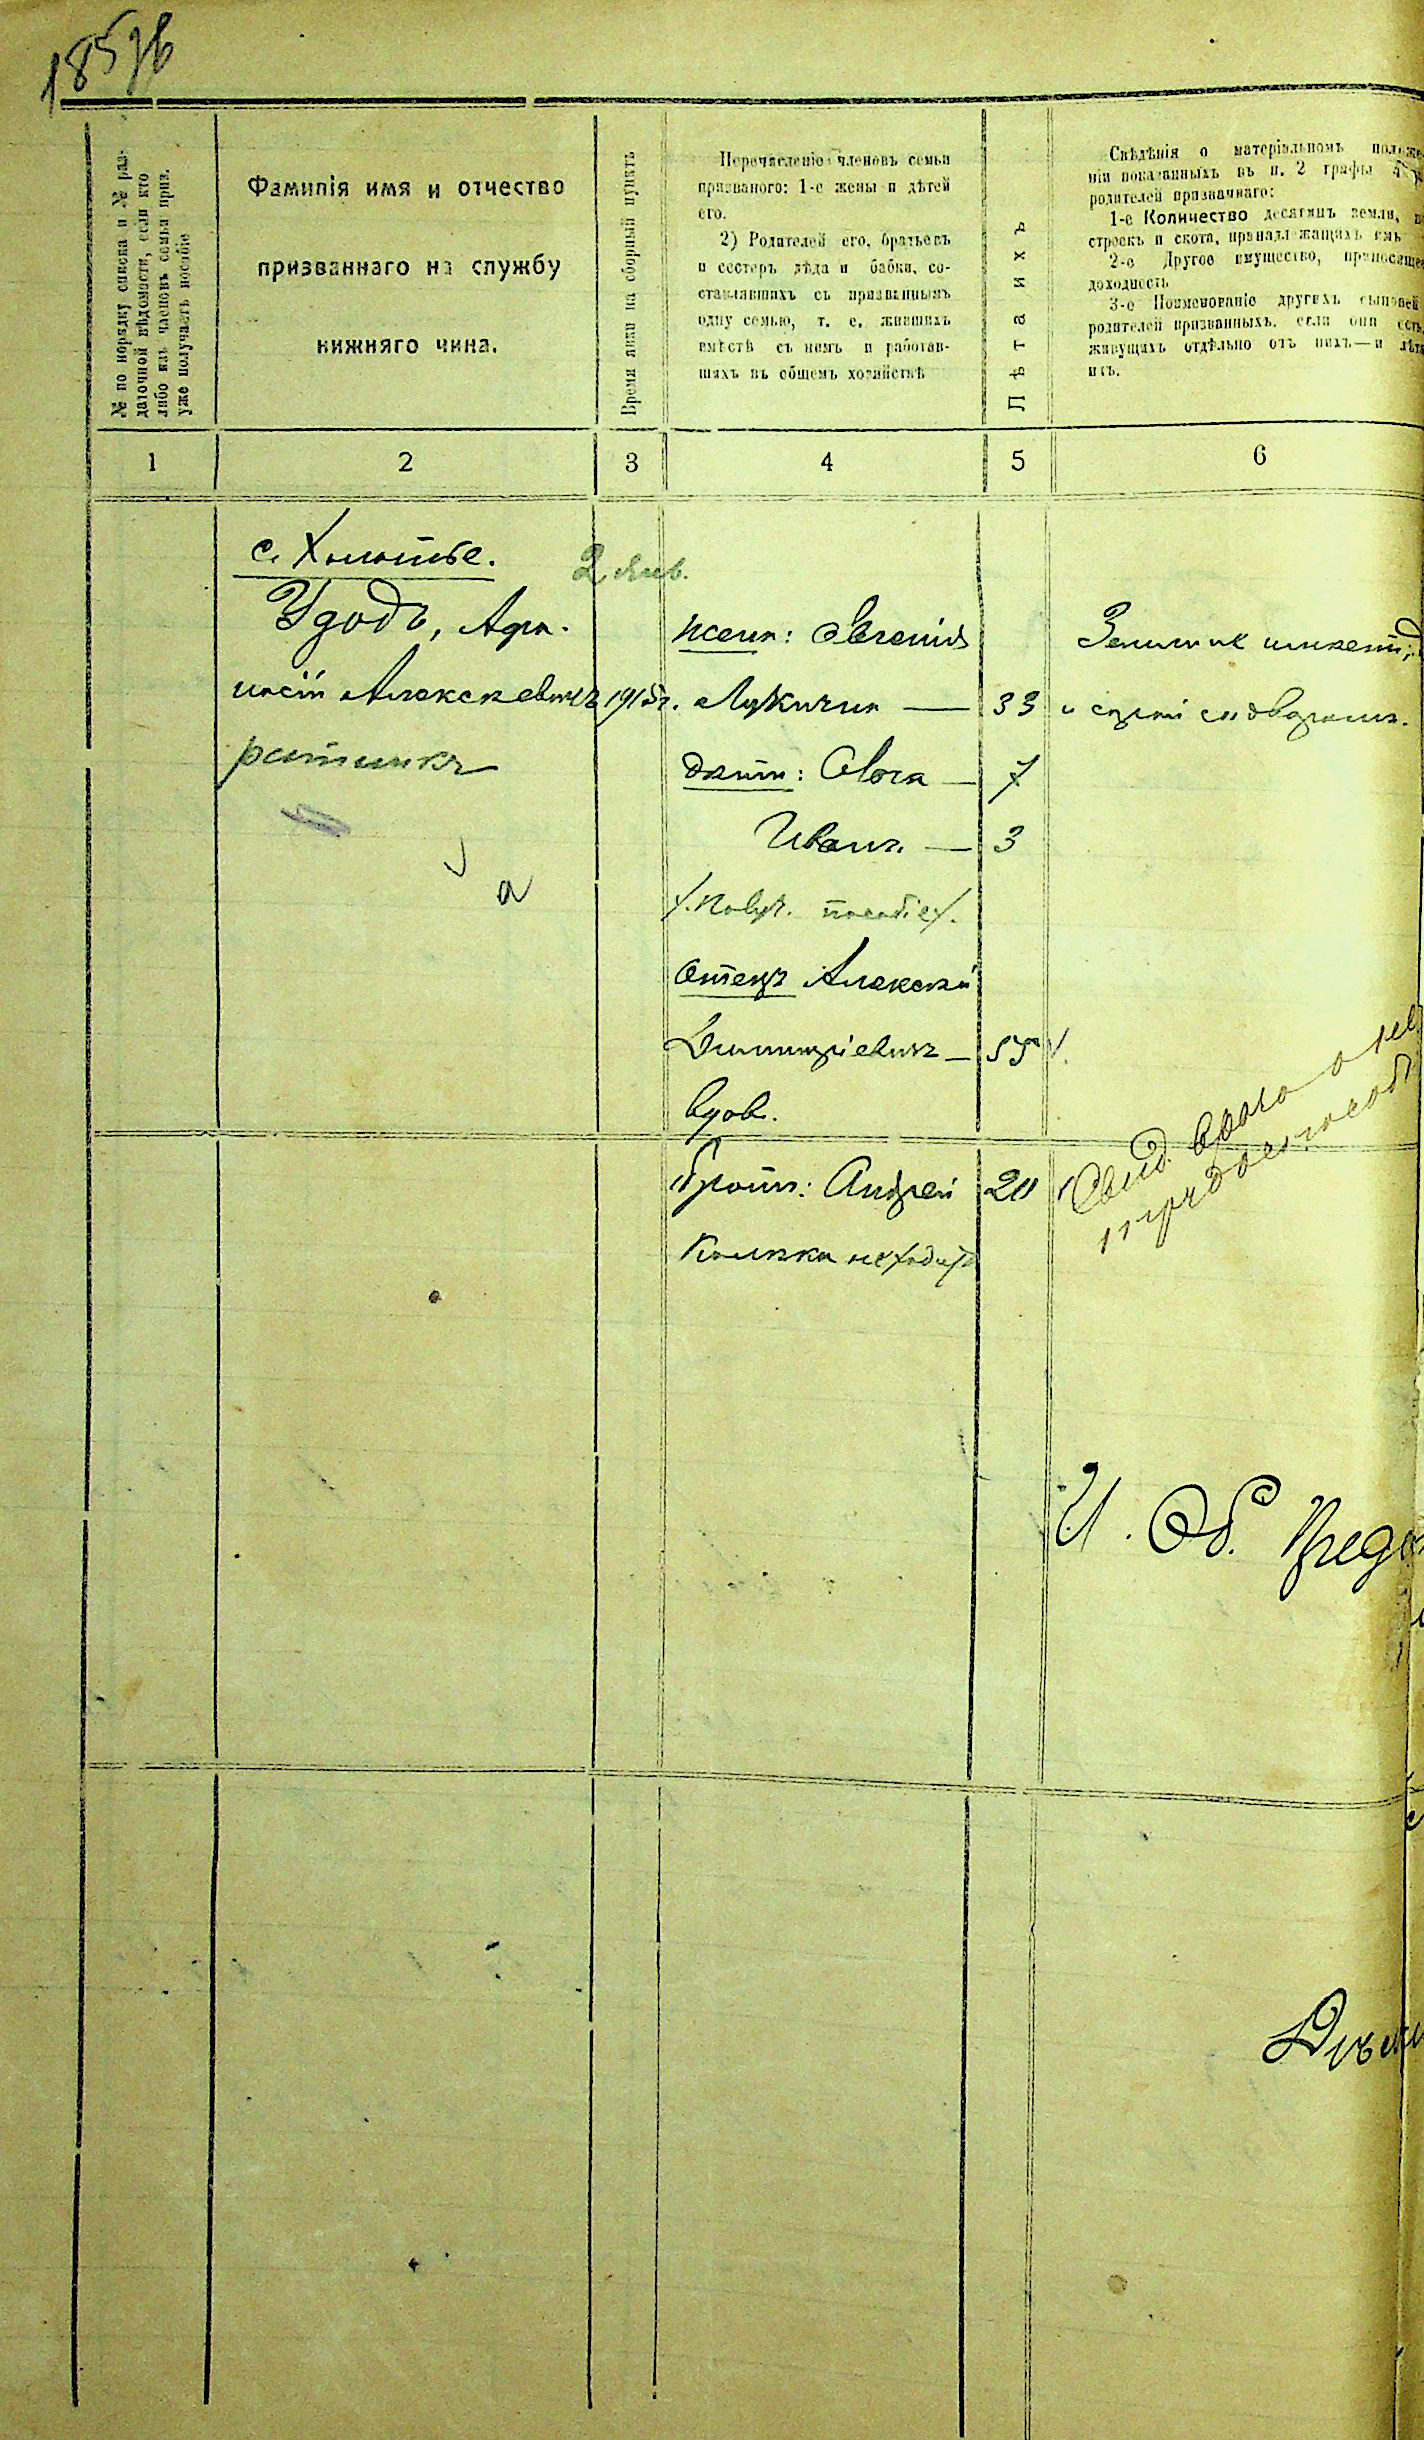 185
№ по порядку списка и № раз-
даточной вѣдомости, если кто
либо изъ членовъ семьи приз.
уже получаетъ пособіе
Фамилія имя и отчество
призваннаго на службу
нижняго чина.
Время явки на сборный пунктъ
Перечисленіе членовъ семьи
призваного: 1-е жены и дѣтей
его.
2) Родителей его, братьевъ
и сестеръ дѣда и бабки, со-
ставлявшихъ съ призваннымъ
одну семью, т. е. жившихъ
вмѣстѣ съ нимъ и работав-
шихъ въ общемъ хозяйствѣ
Лѣта ихъ
Свѣдѣнія о матеріальномъ положе
ніи показанныхъ въ п. 2 графы
родителей призваннаго:
1-е Количество десятинъ земли,
строекъ и скота, принадлежащихъ имъ
2-е Другое имущество, приносящее
доходность
3-е Поименованіе другихъ сыновей
родителей призванныхъ. если они есть,
живущихъ отдѣльно отъ нихъ—и лѣта
ихъ.
1 2 3 4 5 6
с.
2 Янв.
Удодъ, Афа-
жена: Евгенія
насій Алексѣевичъ 1915г. Лукична — 33 и
ратникъ
дѣти: Ольга — 7
Иванъ — 3
/. Получ. пособіе /.
Отецъ Алексѣй
Димитріевичъ — 55
вдов.
братъ: Андрей 20
Калѣка не ходитъ
Свид. врача о
И. Об. Предс